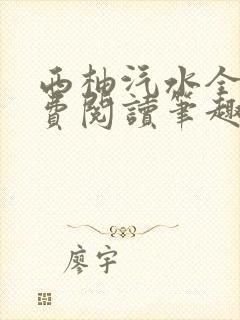 西柚汽水全
費閱讀筆趣
廖宇